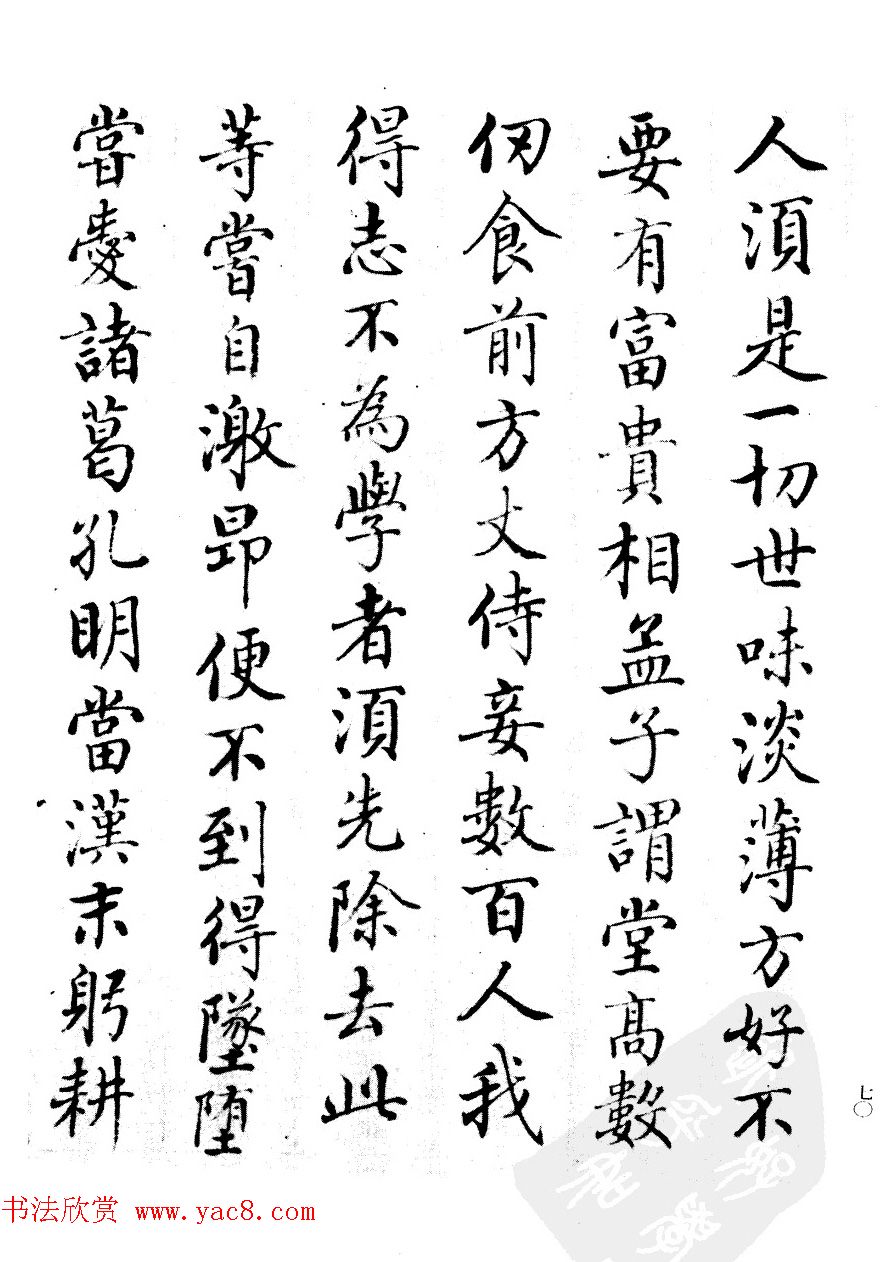 人須是一切世味淡薄方好不
要有富貴相孟子謂堂高數
仞食前方丈侍妾數百人我
得志不為學者須先除去此
等嘗自激昂便不到得墜堕
嘗愛諸葛孔明當漢末躬耕
七〇
书法欣赏 www.yac8.com